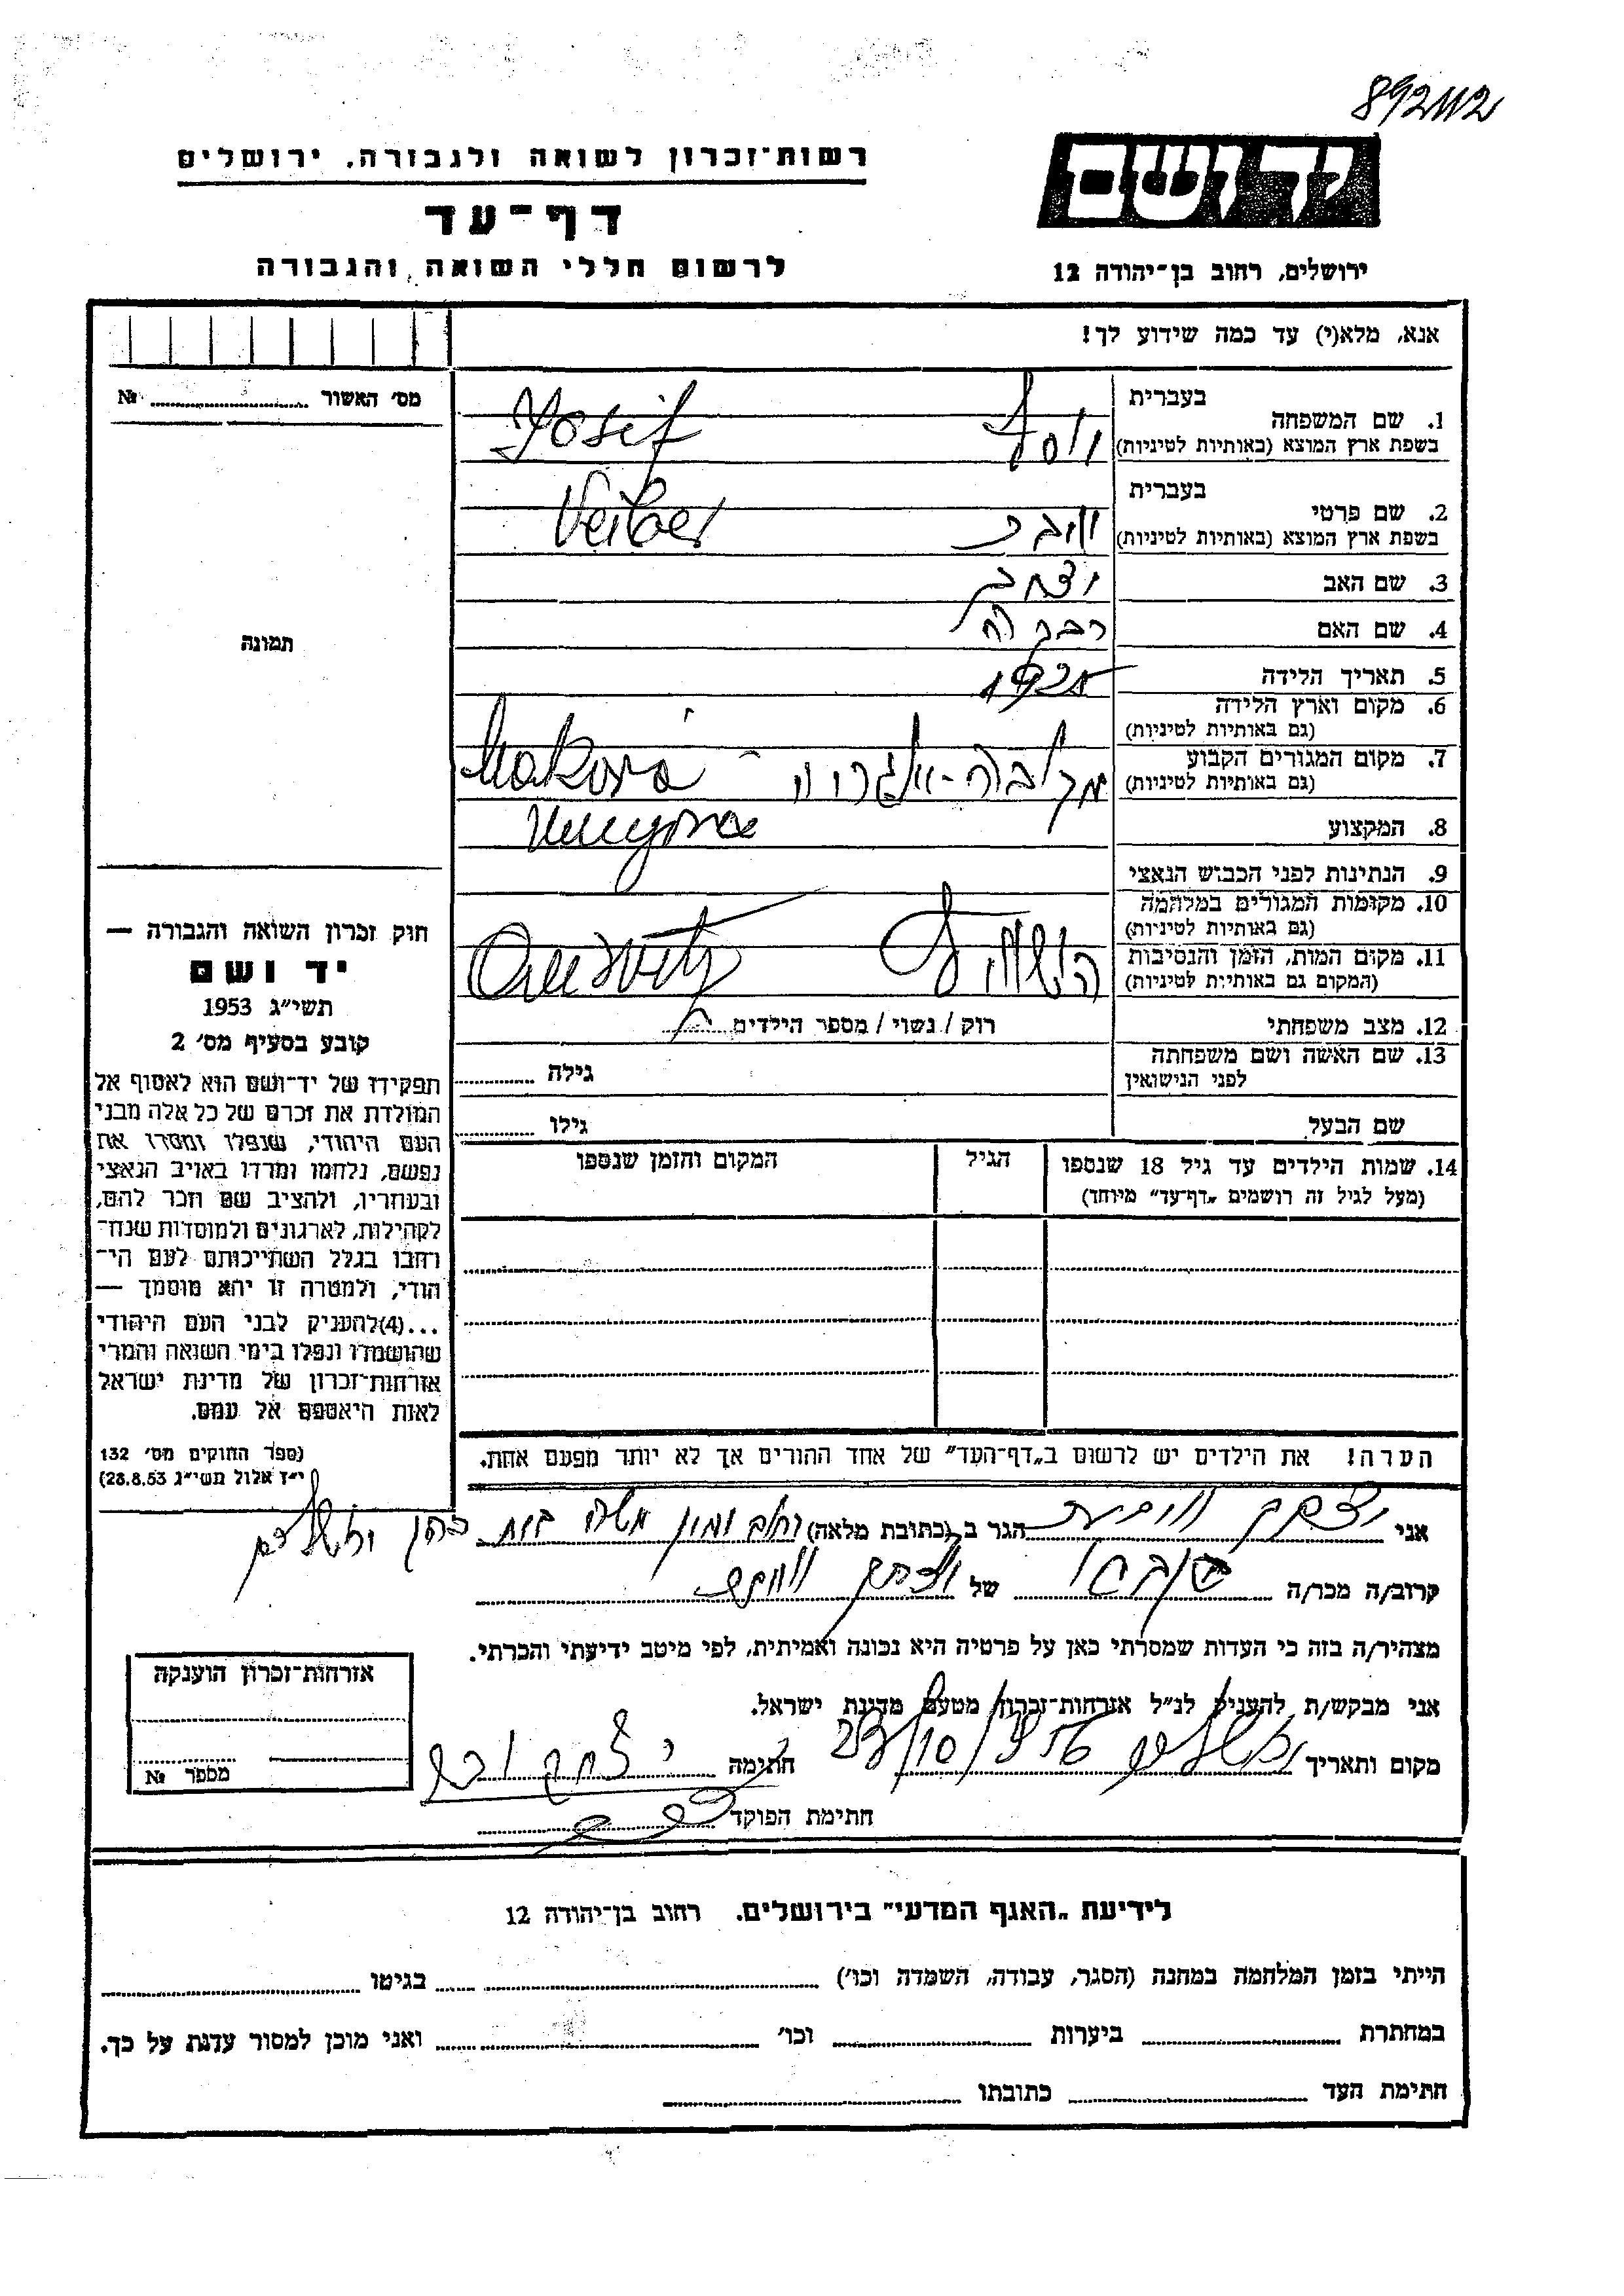 892112
יד ושם
רשות־זכרון לשואה ולגבורה, ירושלים
דף־עד
לרשום חללי השואה והגבורה
ירושלים, רחוב בן־יהודה 12
אנא, מלא(י) עד כמה שידוע לך!
מס׳ האשור № 
תמונה
1. שם המשפחה
בעברית
בשפת ארץ המוצא (באותיות לטיניות)
יוסף Yosif
2. שם פרטי
בעברית
בשפת ארץ המוצא (באותיות לטיניות)
וויבר Veiber
3. שם האב יצחק
4. שם האם רבקה
5. תאריך הלידה
6. מקום וארץ הלידה
(גם באותיות לטיניות)
7. מקום המגורים הקבוע
(גם באותיות לטיניות)
8. המקצוע
9. הנתינות לפני הכבוש הנאצי
10. מקומות המגורים במלחמה
(גם באותיות לטיניות)
11. מקום המות, הזמן והנסיבות
(המקום גם באותיות לטיניות)
12. מצב משפחתי רוק / נשוי / מספר הילדים
13. שם האשה ושם משפחתה
לפני הנישואין גילה
שם הבעל גילו
14. שמות הילדים עד גיל 18 שנספו הגיל המקום והזמן שנספו
(מעל לגיל זה רושמים „דף־עד” מיוחד)
הערה! את הילדים יש לרשום ב„דף־העד” של אחד ההורים אך לא יותר מפעם אחת.
חוק זכרון השואה והגבורה —
יד ושם
תשי״ג 1953
קובע בסעיף מס׳ 2
תפקידו של יד־ושם הוא לאסוף אל
המולדת את זכרם של כל אלה מבני
העם היהודי, שנפלו ומסרו את
נפשם, נלחמו ומרדו באויב הנאצי
ובעוזריו, ולהציב שם וזכר להם,
לקהילות, לארגונים ולמוסדות שנח־
רבו בגלל השתייכותם לעם הי־
הודי, ולמטרה זו יהא מוסמך —
...(4)להעניק לבני העם היהודי
שהושמדו ונפלו בימי השואה והמרי
אזרחות־זכרון של מדינת ישראל
לאות היאספם אל עמם.
(ספר החוקים מס׳ 132
י״ז אלול תשי״ג 28.8.53)
אני יצחק הגר ב (כתובת מלאה)
קרוב/ה מכר/ה של יצחק
מצהיר/ה בזה כי העדות שמסרתי כאן על פרטיה היא נכונה ואמיתית, לפי מיטב ידיעתי והכרתי.
אני מבקש/ת להעניק לנ״ל אזרחות־זכרון מטעם מדינת ישראל.
מקום ותאריך ירושלים חתימה
חתימת הפוקד
אזרחות־זכרון הוענקה
מספר №
לידיעת „האגף המדעי” בירושלים. רחוב בן־יהודה 12
הייתי בזמן המלחמה במחנה (הסגר, עבודה, השמדה וכו׳) בגיטו
במחתרת ביערות וכו׳ ואני מוכן למסור עדות על כך.
חתימת העד כתובתו